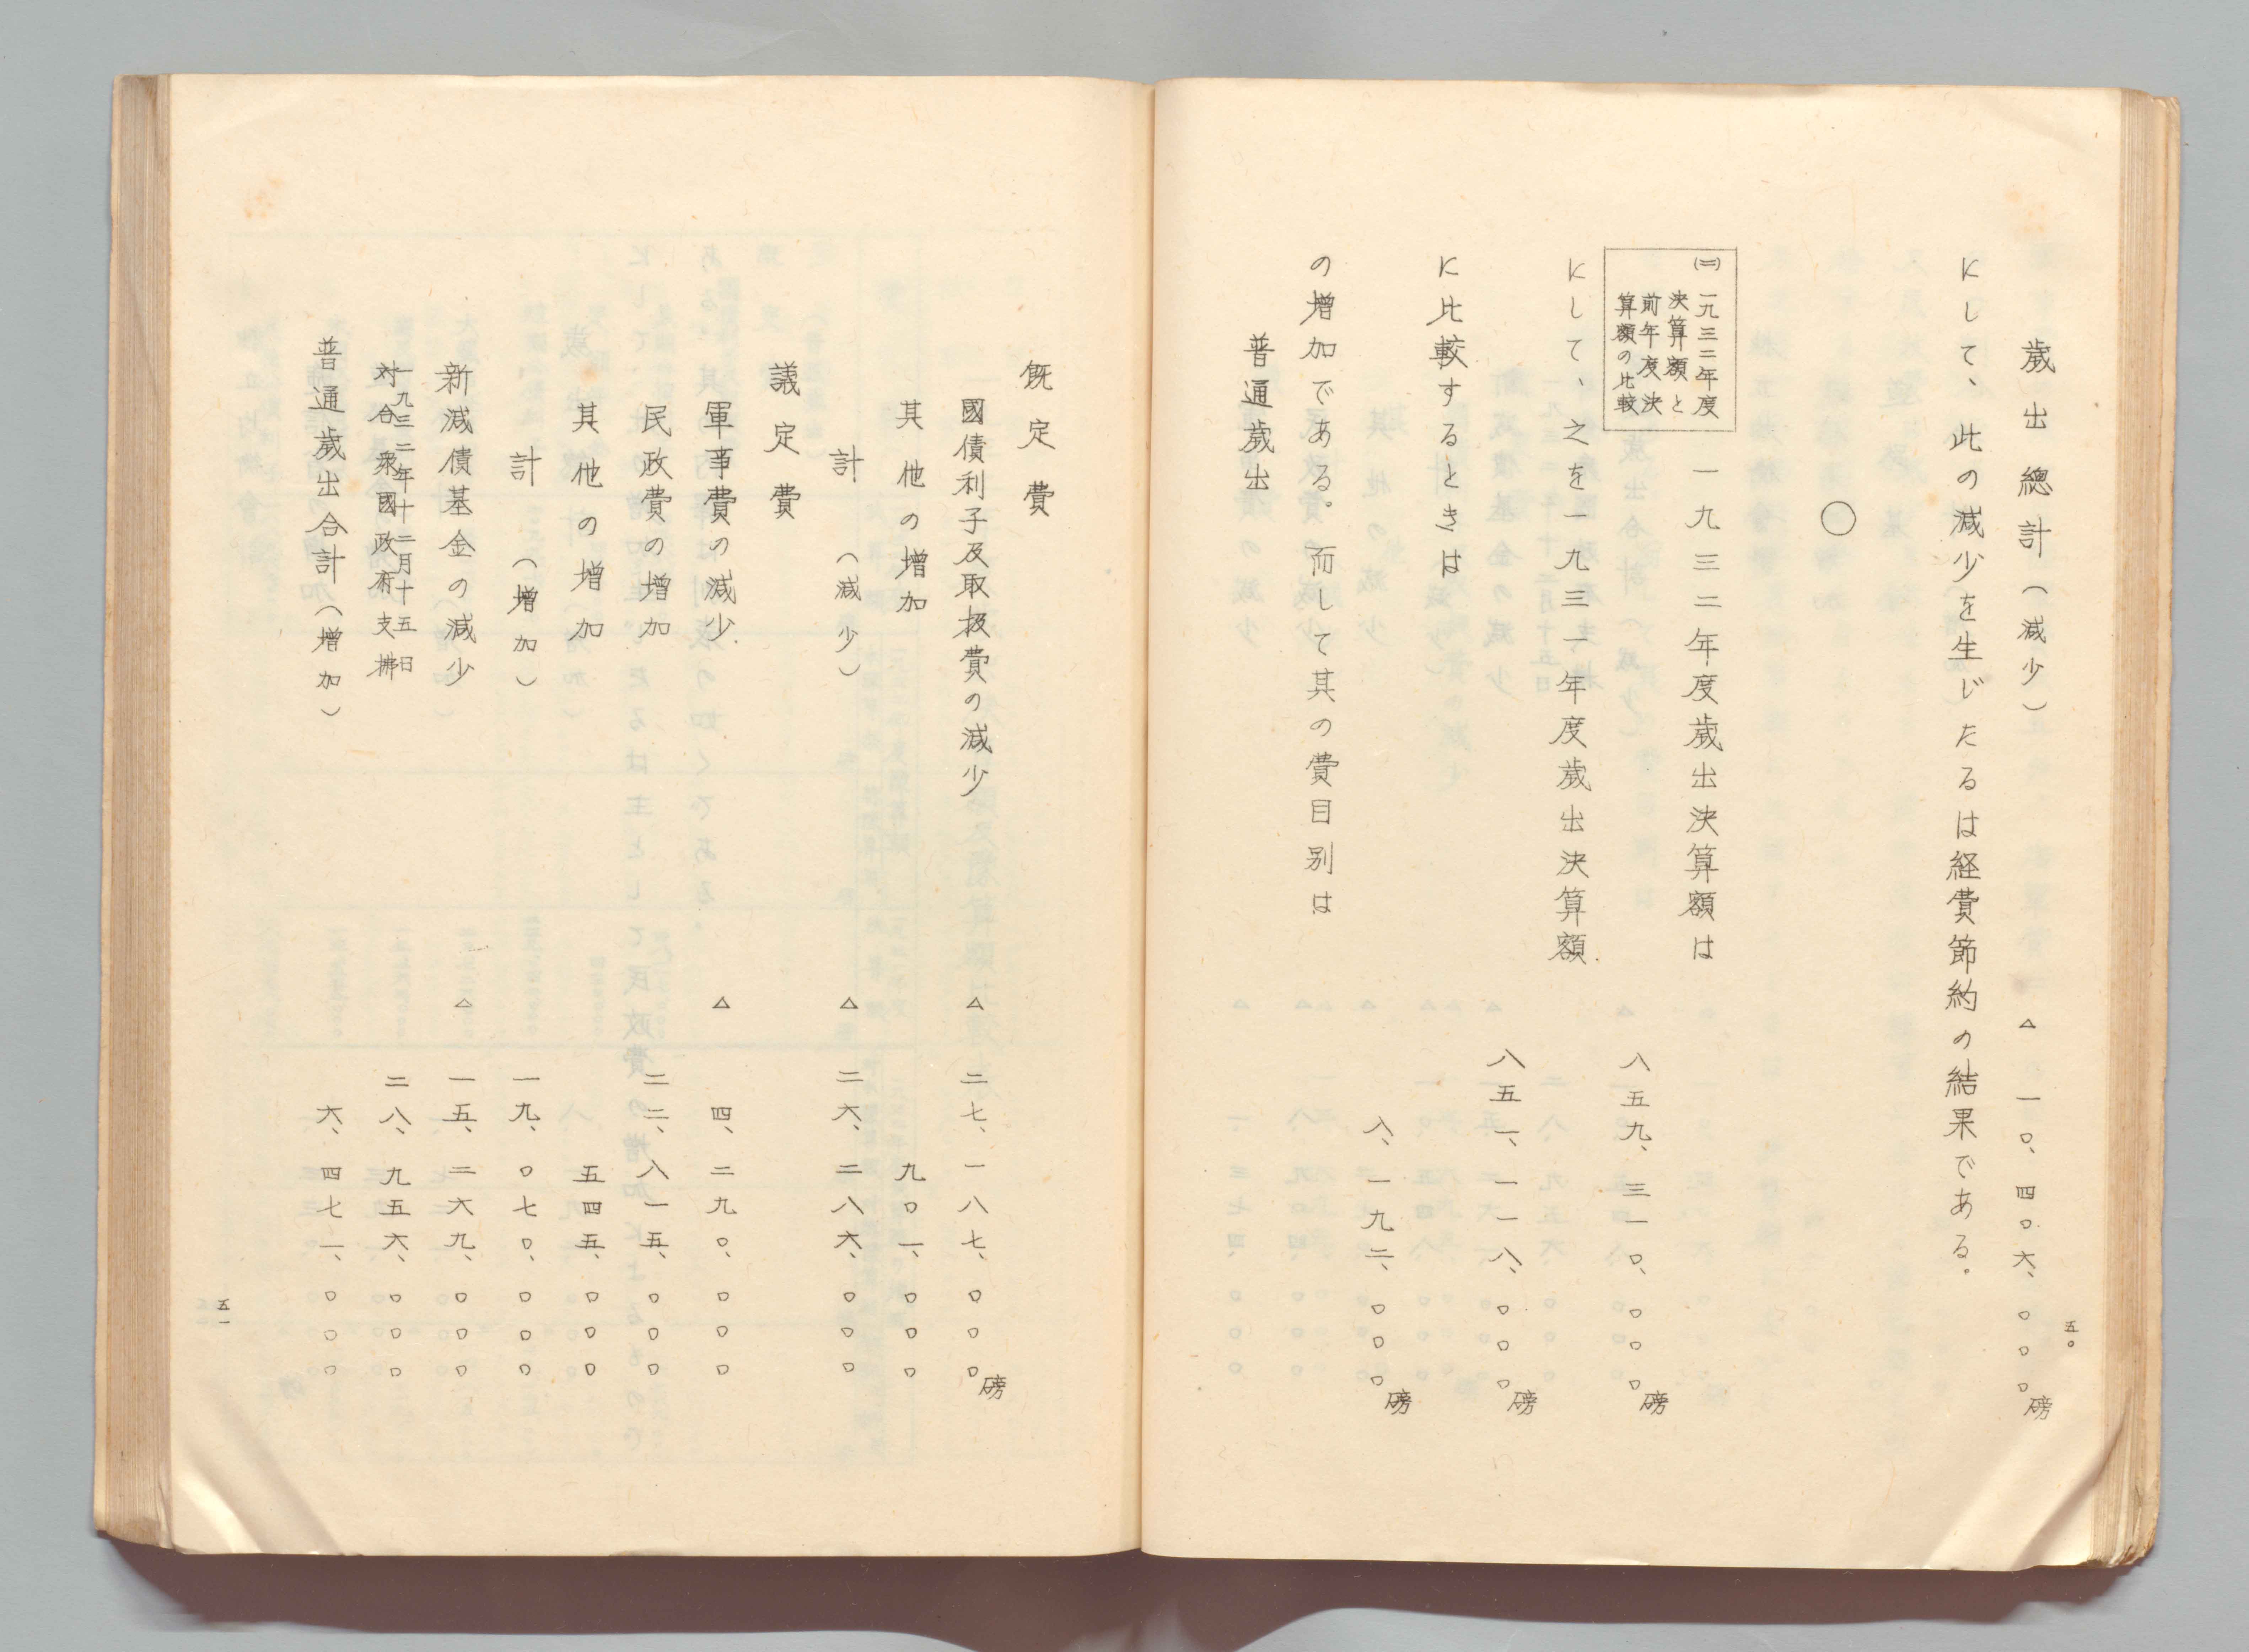 歲出總計(減少) △一〇、四〇六、〇〇〇磅
にして、此の減少を生じたるは経費節約の結果である。
○
(二)一九三二年度
決算額と
前年度決
算額の比較
一九三二年度歲出決算額は
八五九、三一〇、〇〇〇磅
にして、之を一九三一年度歲出決算額
八五一、一一八、〇〇〇磅
に比較するときは
八、一九二、〇〇〇磅
の增加である。而して其の費目別は
普通歲出
五〇
既定費
國債利子及取扱費の減少 △二七、一八七、〇〇〇磅
其他の增加 九〇一、〇〇〇
計(減少) △二六、二八六、〇〇〇
議定費
軍事費の減少 △四、二九〇、〇〇〇
民政費の增加 二二、八一五、〇〇〇
其他の增加 五四五、〇〇〇
計(增加) 一九、〇七〇、〇〇〇
新減債基金の減少 △一五、二六九、〇〇〇
一九三二年十二月十五日
対合衆國政府支拂 二八、九五六、〇〇〇
普通歲出合計(增加) 六、四七一、〇〇〇
五一